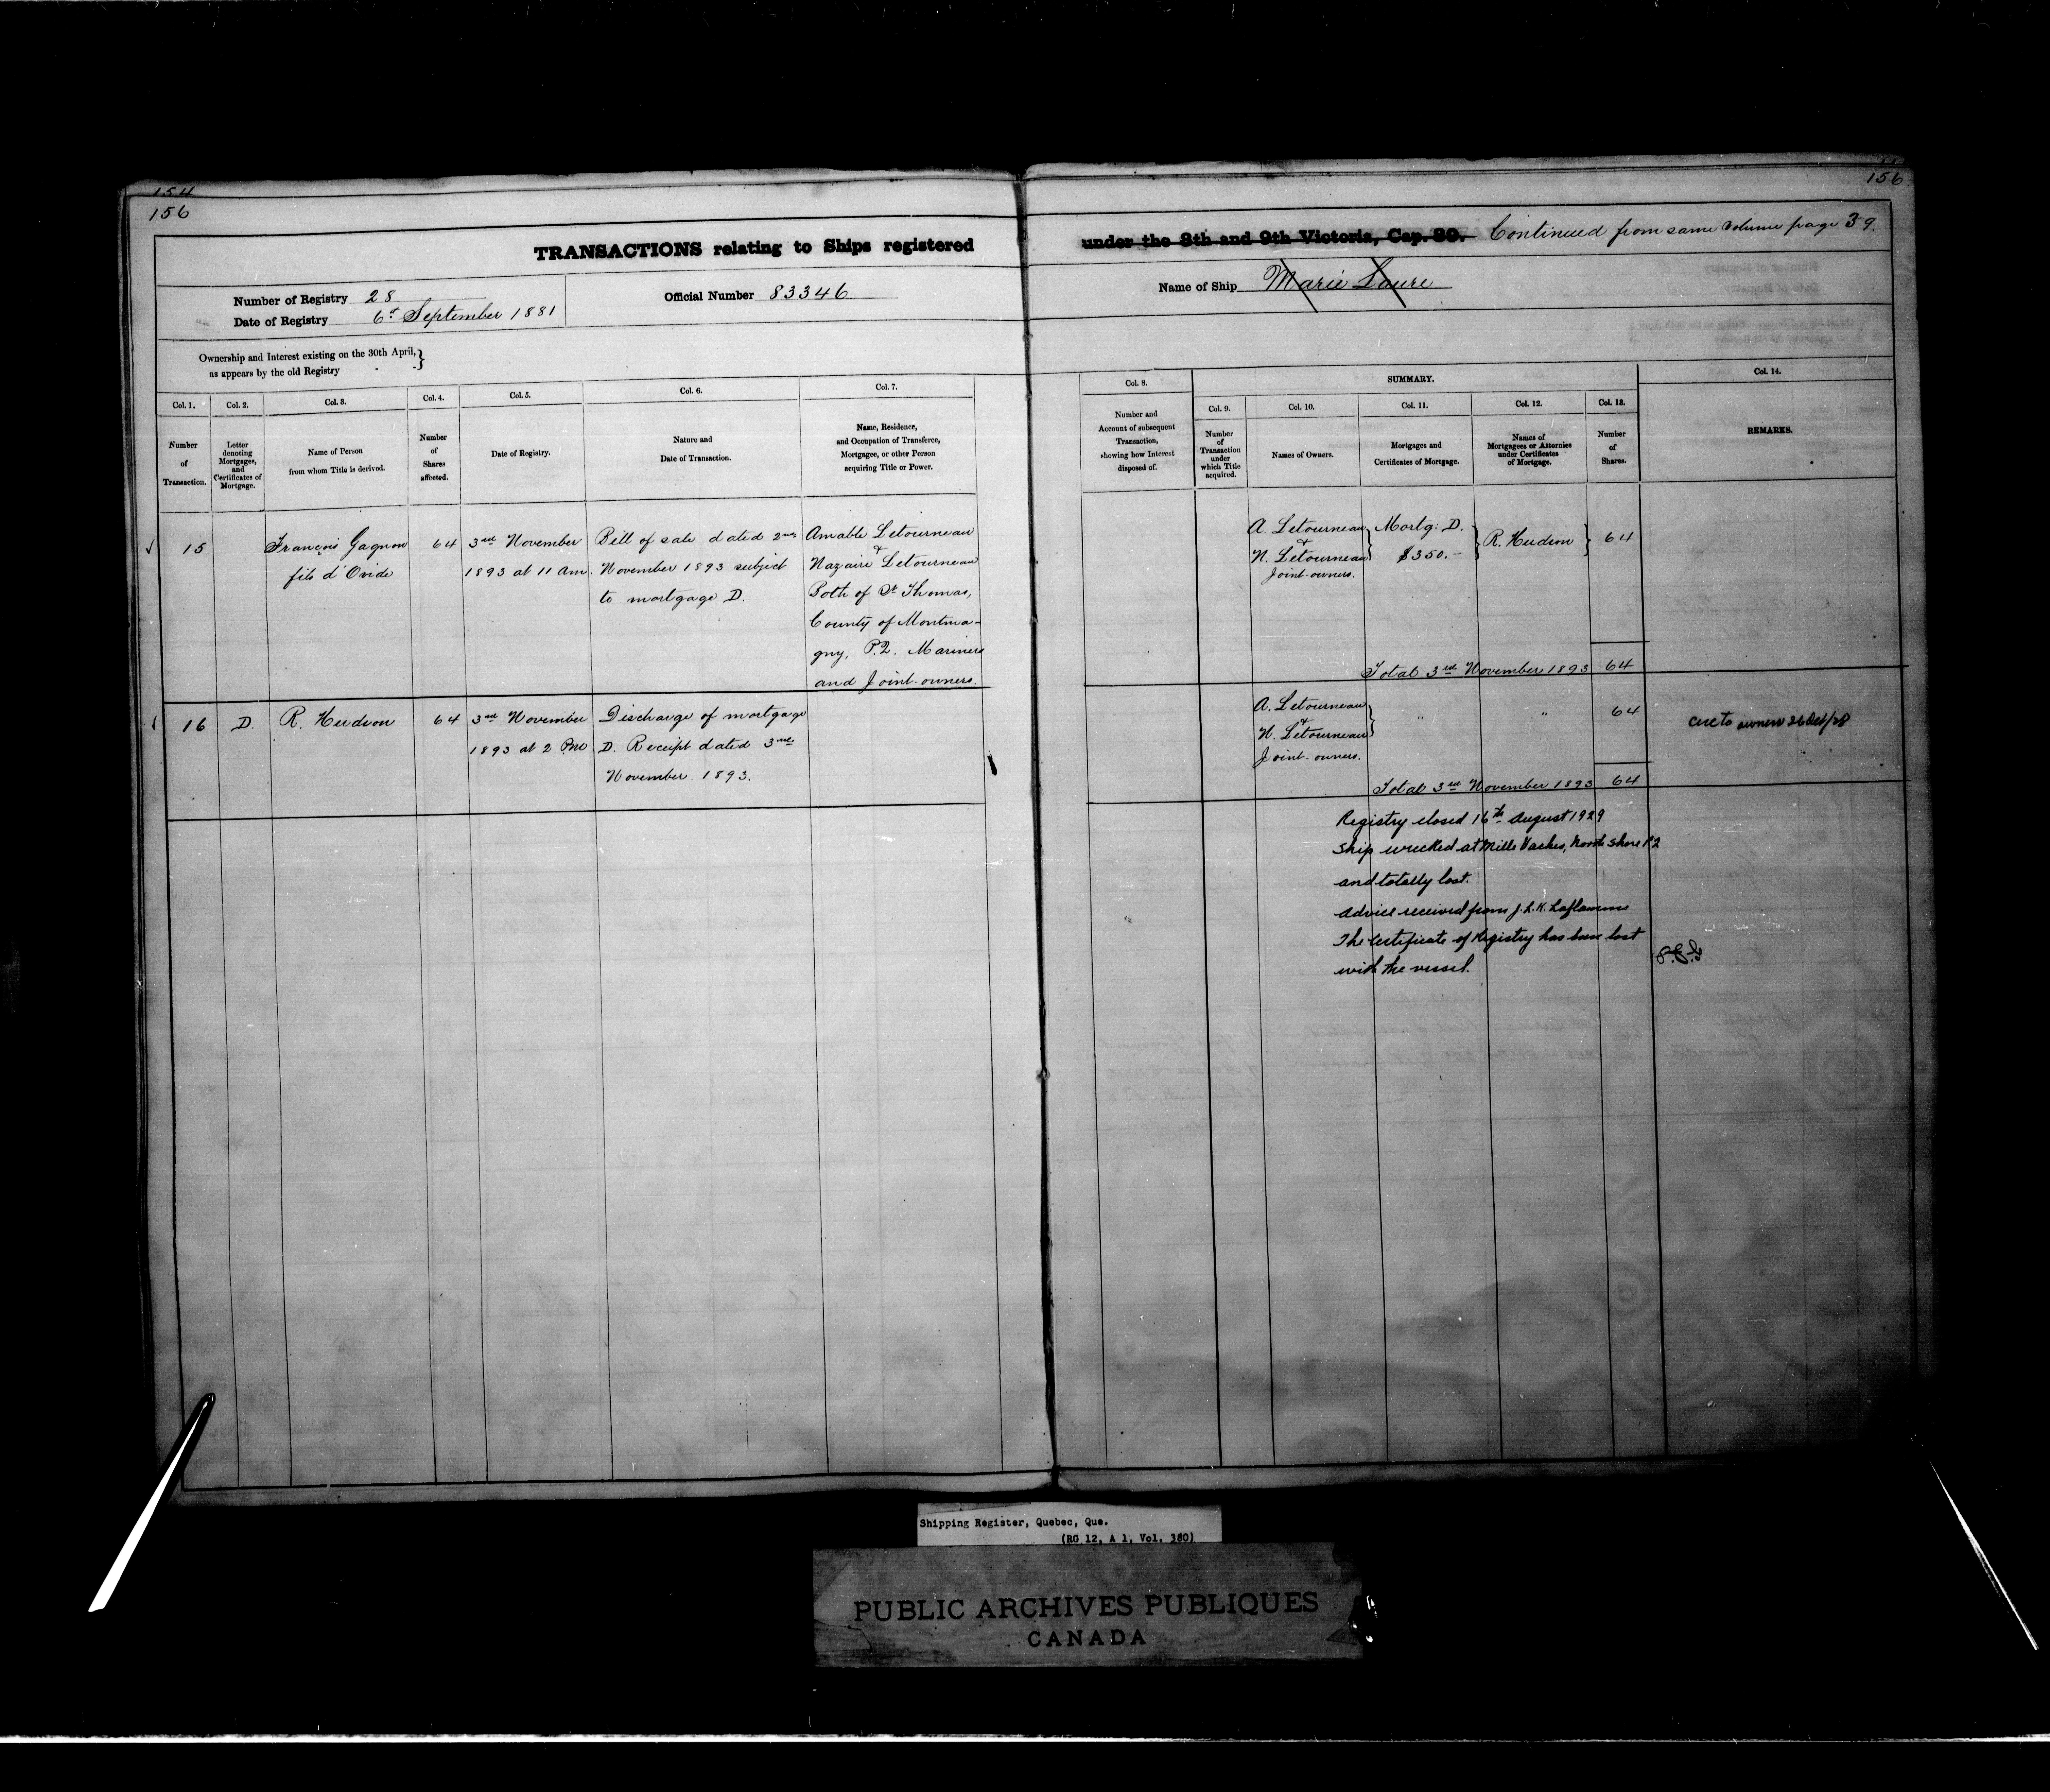 154
156
156
TRANSACTIONS relating to Ships registered under the 8th and 9th Victoria, Cap. 89. Continued from same volume page 39.
Number of Registry 28
Date of Registry 6th September 1881
Official Number 83346
Name of Ship Marie Laure
Ownership and Interest existing on the 30th April,
as appears by the old Registry
Col. 1.
Number
of
Transaction.
Col. 2.
Letter
denoting
Mortgages,
and
Certificates of
Mortgage.
Col. 3.
Name of Person
from whom Title is derived.
Col. 4.
Number
of
Shares
affected.
Col. 5.
Date of Registry.
Col. 6.
Nature and
Date of Transaction.
Col. 7.
Name, Residence,
and Occupation of Transferee,
Mortgagee, or other Person
acquiring Title or Power.
Col. 8.
Number and
Account of subsequent
Transaction,
showing how Interest
disposed of.
SUMMARY.
Col. 9.
Number
of
Transaction
under
which Title
acquired.
Col. 10.
Names of Owners.
Col. 11.
Mortgages and
Certificates of Mortgage.
Col. 12.
Names of
Mortgagees or Attornies
under Certificates
of Mortgage.
Col. 13.
Number
of
Shares.
Col. 14.
REMARKS.
15
François Gagnon
fils d'Ovide
64
3rd November
1893 at 11 Am.
Bill of sale dated 2nd
November 1893 subject
to mortgage D.
Amable Letourneau
&
Nazaire Letourneau
Both of St Thomas,
County of Montma-
gny, P.Q. Mariners
and Joint-owners.
A. Letourneau
&
N. Letourneau
Joint-owners.
Mortg: D.
$350.-
R. Hudson
64
Total 3rd November 1893 64
16
D.
R. Hudson
64
3rd November
1893 at 2 Pm
Discharge of mortgage
D. Receipt dated 3rd
November 1893.
A. Letourneau
&
N. Letourneau
Joint-owners.
" "
64
Total 3rd November 1893 64
owners 26 Oct/28
Registry closed 16th August 1929
Ship wrecked at Mille Vaches, North Shore P.Q
and totally lost.
Advice received from J. L. K. Laflamme
The Certificate of Registry has been lost
with the vessel.
Shipping Register, Quebec, Que.
(RG 12, A 1, Vol. 380)
PUBLIC ARCHIVES PUBLIQUES
CANADA